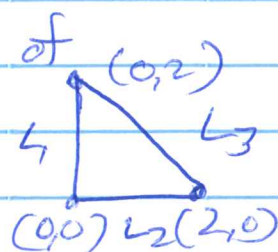 of
(0,2)
L1 L3
(0,0) L2 (2,0)